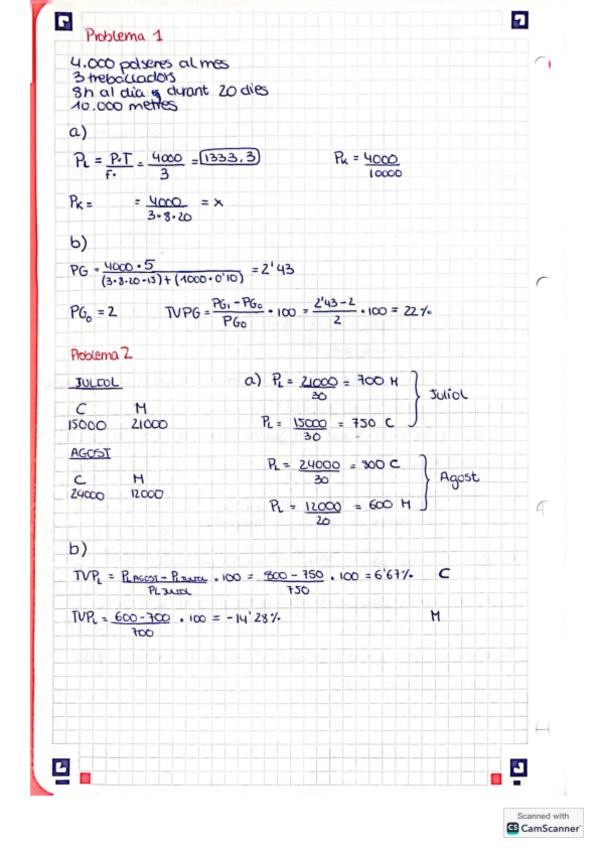 Problema 1
4.000 polseres al mes
3 treballadors
8h al dia y durant 20 dies
10.000 metres
a)
PL = P.T / F. = 4000 / 3 = 1333,3
PK = 4000 / 10000
PK = = 4000 / 3·8·20 = x
b)
PG = 4000·5 / (3·8·20·13)+(1000·0'10) = 2'43
PG₀ = 2 TVPG = PG₁ - PG₀ / PG₀ · 100 = 2'43-2 / 2 · 100 = 22%
Problema 2
JULIOL
C M
15000 21000
a) PL = 21000 / 30 = 700 M
PL = 15000 / 30 = 750 C
Juliol
AGOST
C M
24000 12000
PL = 24000 / 30 = 800 C
PL = 12000 / 20 = 600 M
Agost
b)
TVPL = PL AGOST - PL JULIOL / PL JULIOL · 100 = 800 - 750 / 750 · 100 = 6'67% C
TVPL = 600 - 700 / 700 · 100 = -14'28% M
Scanned with
CS CamScanner